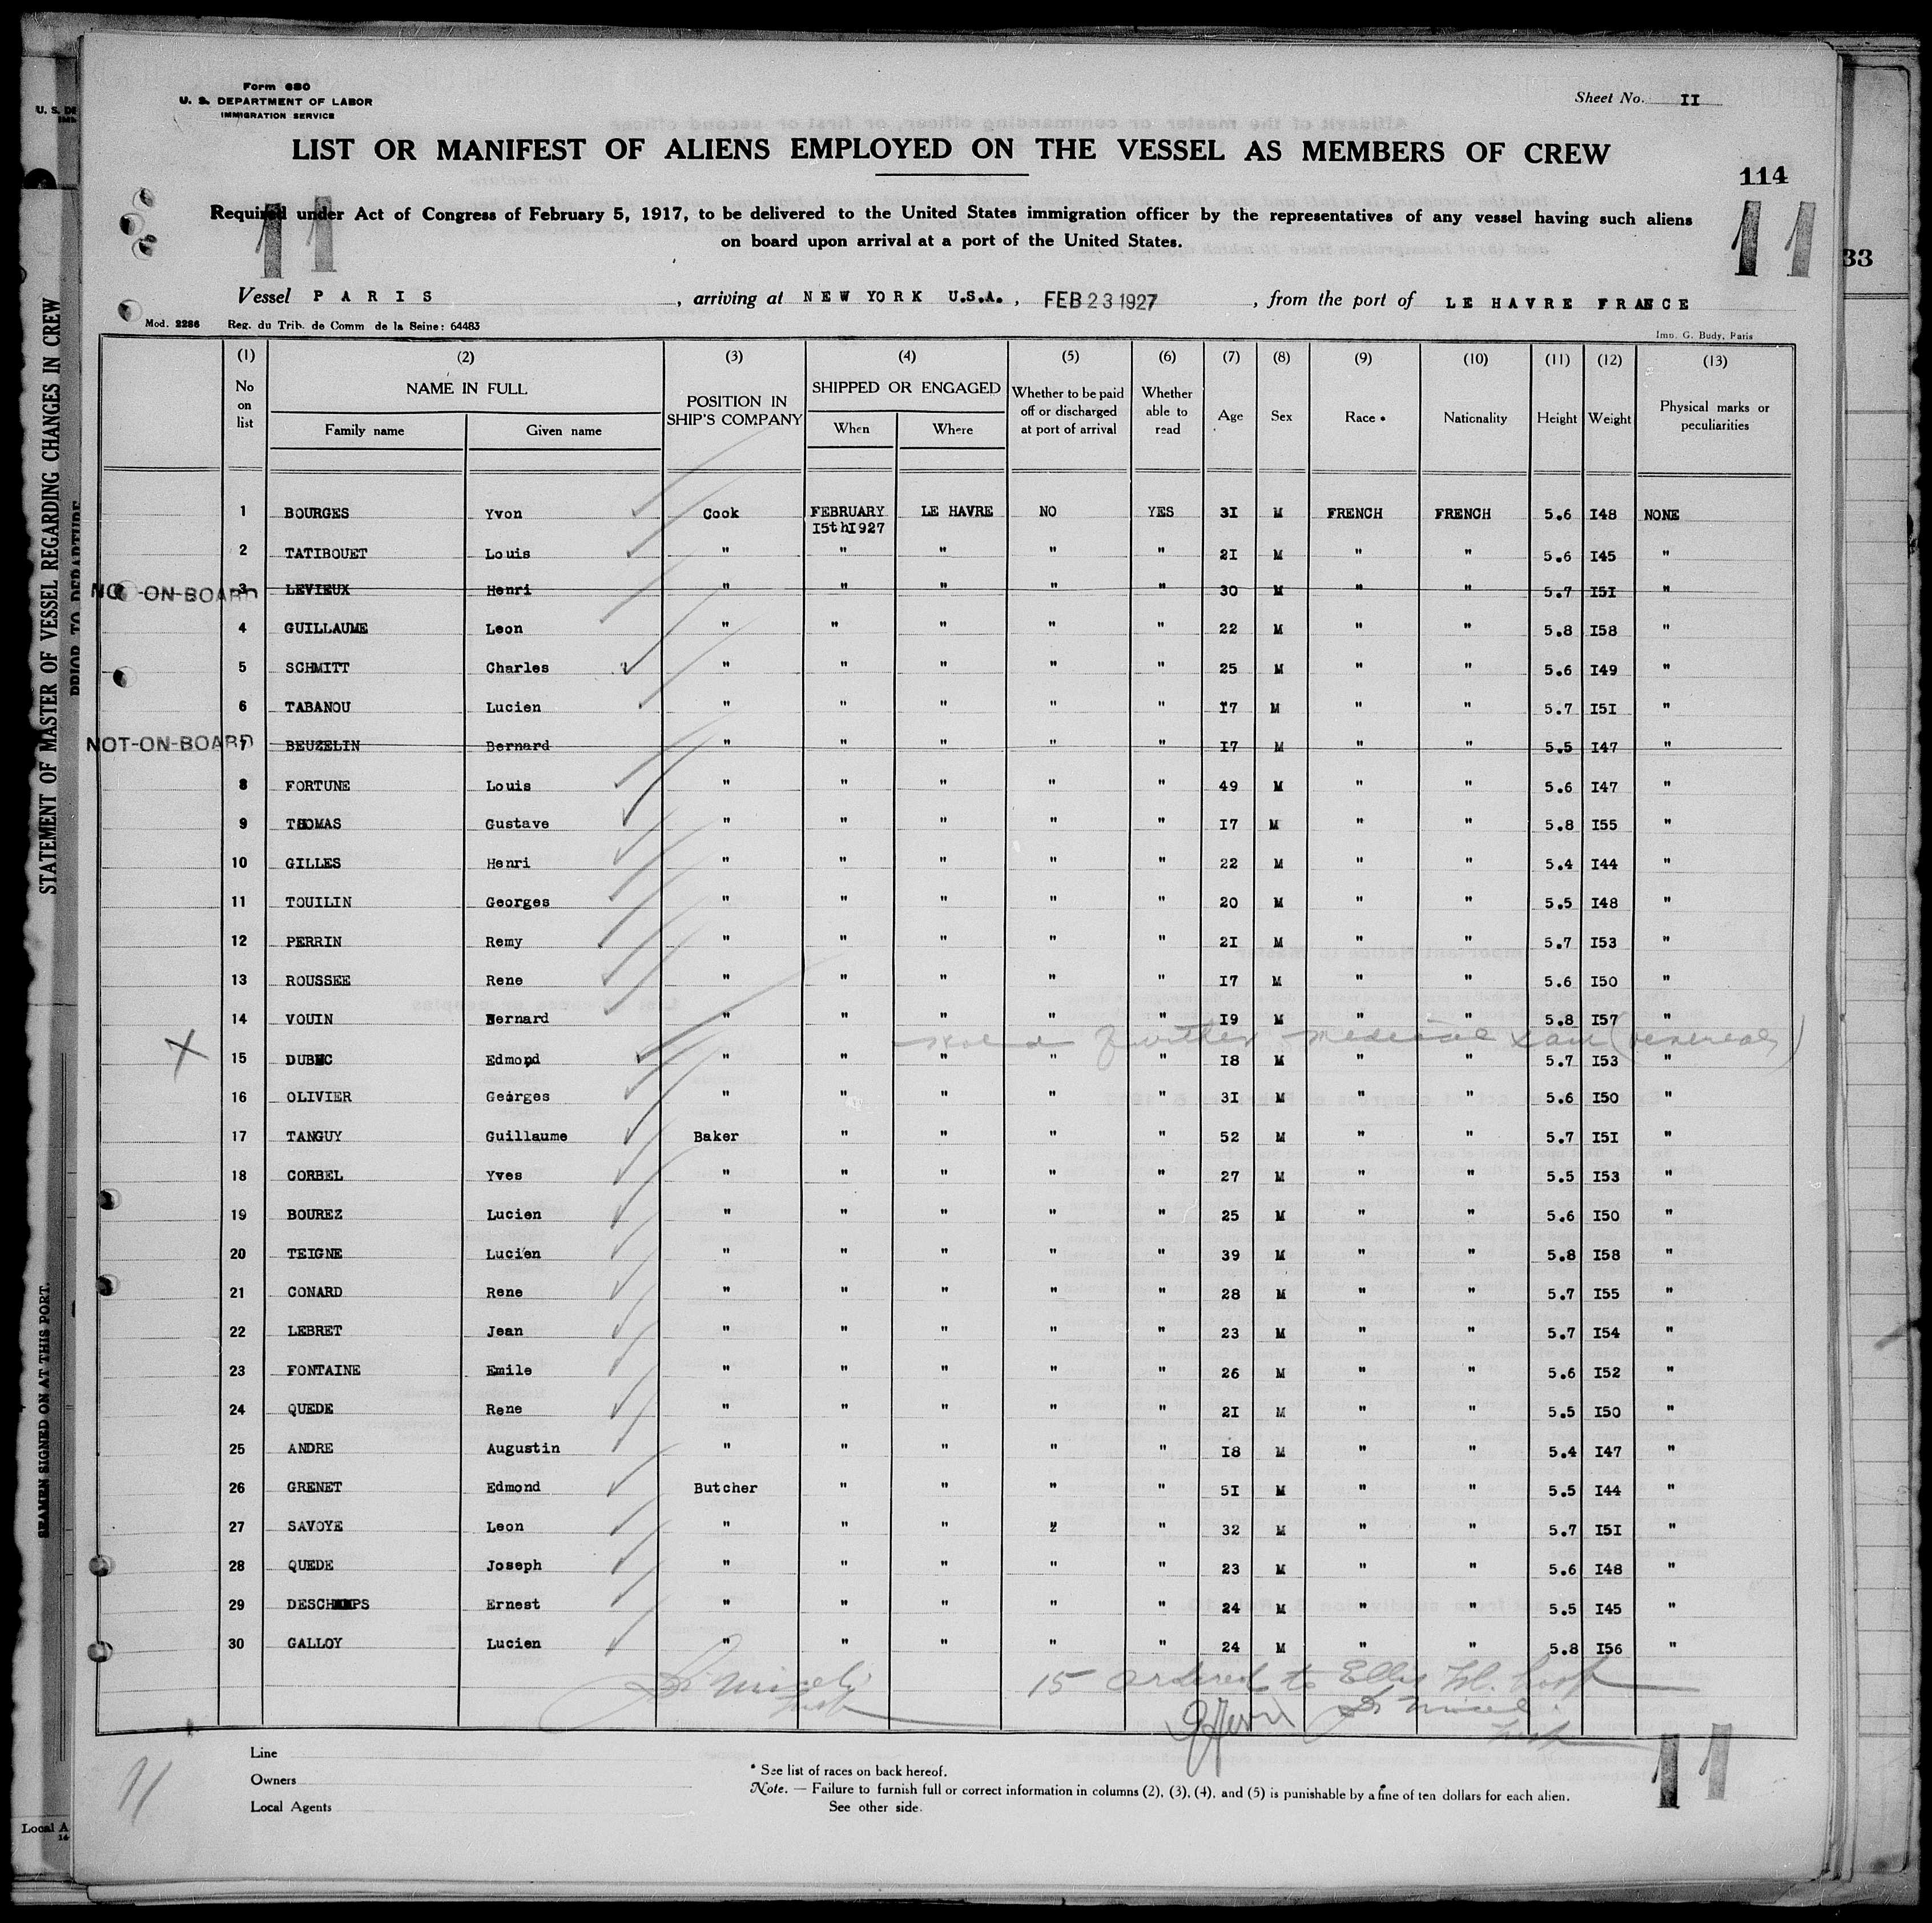 Form 680
U. S. DEPARTMENT OF LABOR
IMMIGRATION SERVICE
Sheet No. II
LIST OR MANIFEST OF ALIENS EMPLOYED ON THE VESSEL AS MEMBERS OF CREW
114
Required under Act of Congress of February 5, 1917, to be delivered to the United States immigration officer by the representatives of any vessel having such aliens
on board upon arrival at a port of the United States.
11
11
Vessel PARIS, arriving at NEW YORK U.S.A., FEB 23 1927, from the port of LE HAVRE FRANCE
Mod. 2286 Reg. du Trib. de Comm de la Seine: 64483
Imp. G. Budy, Paris
(1) (2) (3) (4) (5) (6) (7) (8) (9) (10) (11) (12) (13)
No on list
NAME IN FULL
Family name Given name
POSITION IN SHIP'S COMPANY
SHIPPED OR ENGAGED
When Where
Whether to be paid off or discharged at port of arrival
Whether able to read
Age Sex Race * Nationality Height Weight
Physical marks or peculiarities
1 BOURGES Yvon Cook FEBRUARY I5thI927 LE HAVRE NO YES 3I M FRENCH FRENCH 5.6 I48 NONE
2 TATIBOUET Louis " " " " " 2I M " " 5.6 I45 "
NOT-ON-BOARD 3 LEVIEUX Henri " " " " " 30 M " " 5.7 I5I "
4 GUILLAUME Leon " " " " " 22 M " " 5.8 I58 "
5 SCHMITT Charles " " " " " 25 M " " 5.6 I49 "
6 TABANOU Lucien " " " " " I7 M " " 5.7 I5I "
NOT-ON-BOARD 7 BEUZELIN Bernard " " " " " I7 M " " 5.5 I47 "
8 FORTUNE Louis " " " " " 49 M " " 5.6 I47 "
9 THOMAS Gustave " " " " " I7 M " " 5.8 I55 "
10 GILLES Henri " " " " " 22 M " " 5.4 I44 "
11 TOUILIN Georges " " " " " 20 M " " 5.5 I48 "
12 PERRIN Remy " " " " " 2I M " " 5.7 I53 "
13 ROUSSEE Rene " " " " " I7 M " " 5.6 I50 "
14 VOUIN Bernard " " " " " I9 M " " 5.8 I57 "
further medical exam (venereal)
X 15 DUBEC Edmond " " " " " I8 M " " 5.7 I53 "
16 OLIVIER Geirges " " " " " 3I M " " 5.6 I50 "
17 TANGUY Guillaume Baker " " " " 52 M " " 5.7 I5I "
18 CORBEL Yves " " " " " 27 M " " 5.5 I53 "
19 BOUREZ Lucien " " " " " 25 M " " 5.6 I50 "
20 TEIGNE Lucien " " " " " 39 M " " 5.8 I58 "
21 CONARD Rene " " " " " 28 M " " 5.7 I55 "
22 LEBRET Jean " " " " " 23 M " " 5.7 I54 "
23 FONTAINE Emile " " " " " 26 M " " 5.6 I52 "
24 QUEDE Rene " " " " " 2I M " " 5.5 I50 "
25 ANDRE Augustin " " " " " I8 M " " 5.4 I47 "
26 GRENET Edmond Butcher " " " " 5I M " " 5.5 I44 "
27 SAVOYE Leon " " " " " 32 M " " 5.7 I5I "
28 QUEDE Joseph " " " " " 23 M " " 5.6 I48 "
29 DESCHAMPS Ernest " " " " " 24 M " " 5.5 I45 "
30 GALLOY Lucien " " " " " 24 M " " 5.8 I56 "
15 ordered to Ellis Isl. hosp
Line
Owners
Local Agents
* See list of races on back hereof.
Note. — Failure to furnish full or correct information in columns (2), (3), (4), and (5) is punishable by a fine of ten dollars for each alien.
See other side.
11
11
STATEMENT OF MASTER OF VESSEL REGARDING CHANGES IN CREW
PRIOR TO DEPARTURE
SEAMEN SIGNED ON AT THIS PORT.
U. S. DE
Local A
33